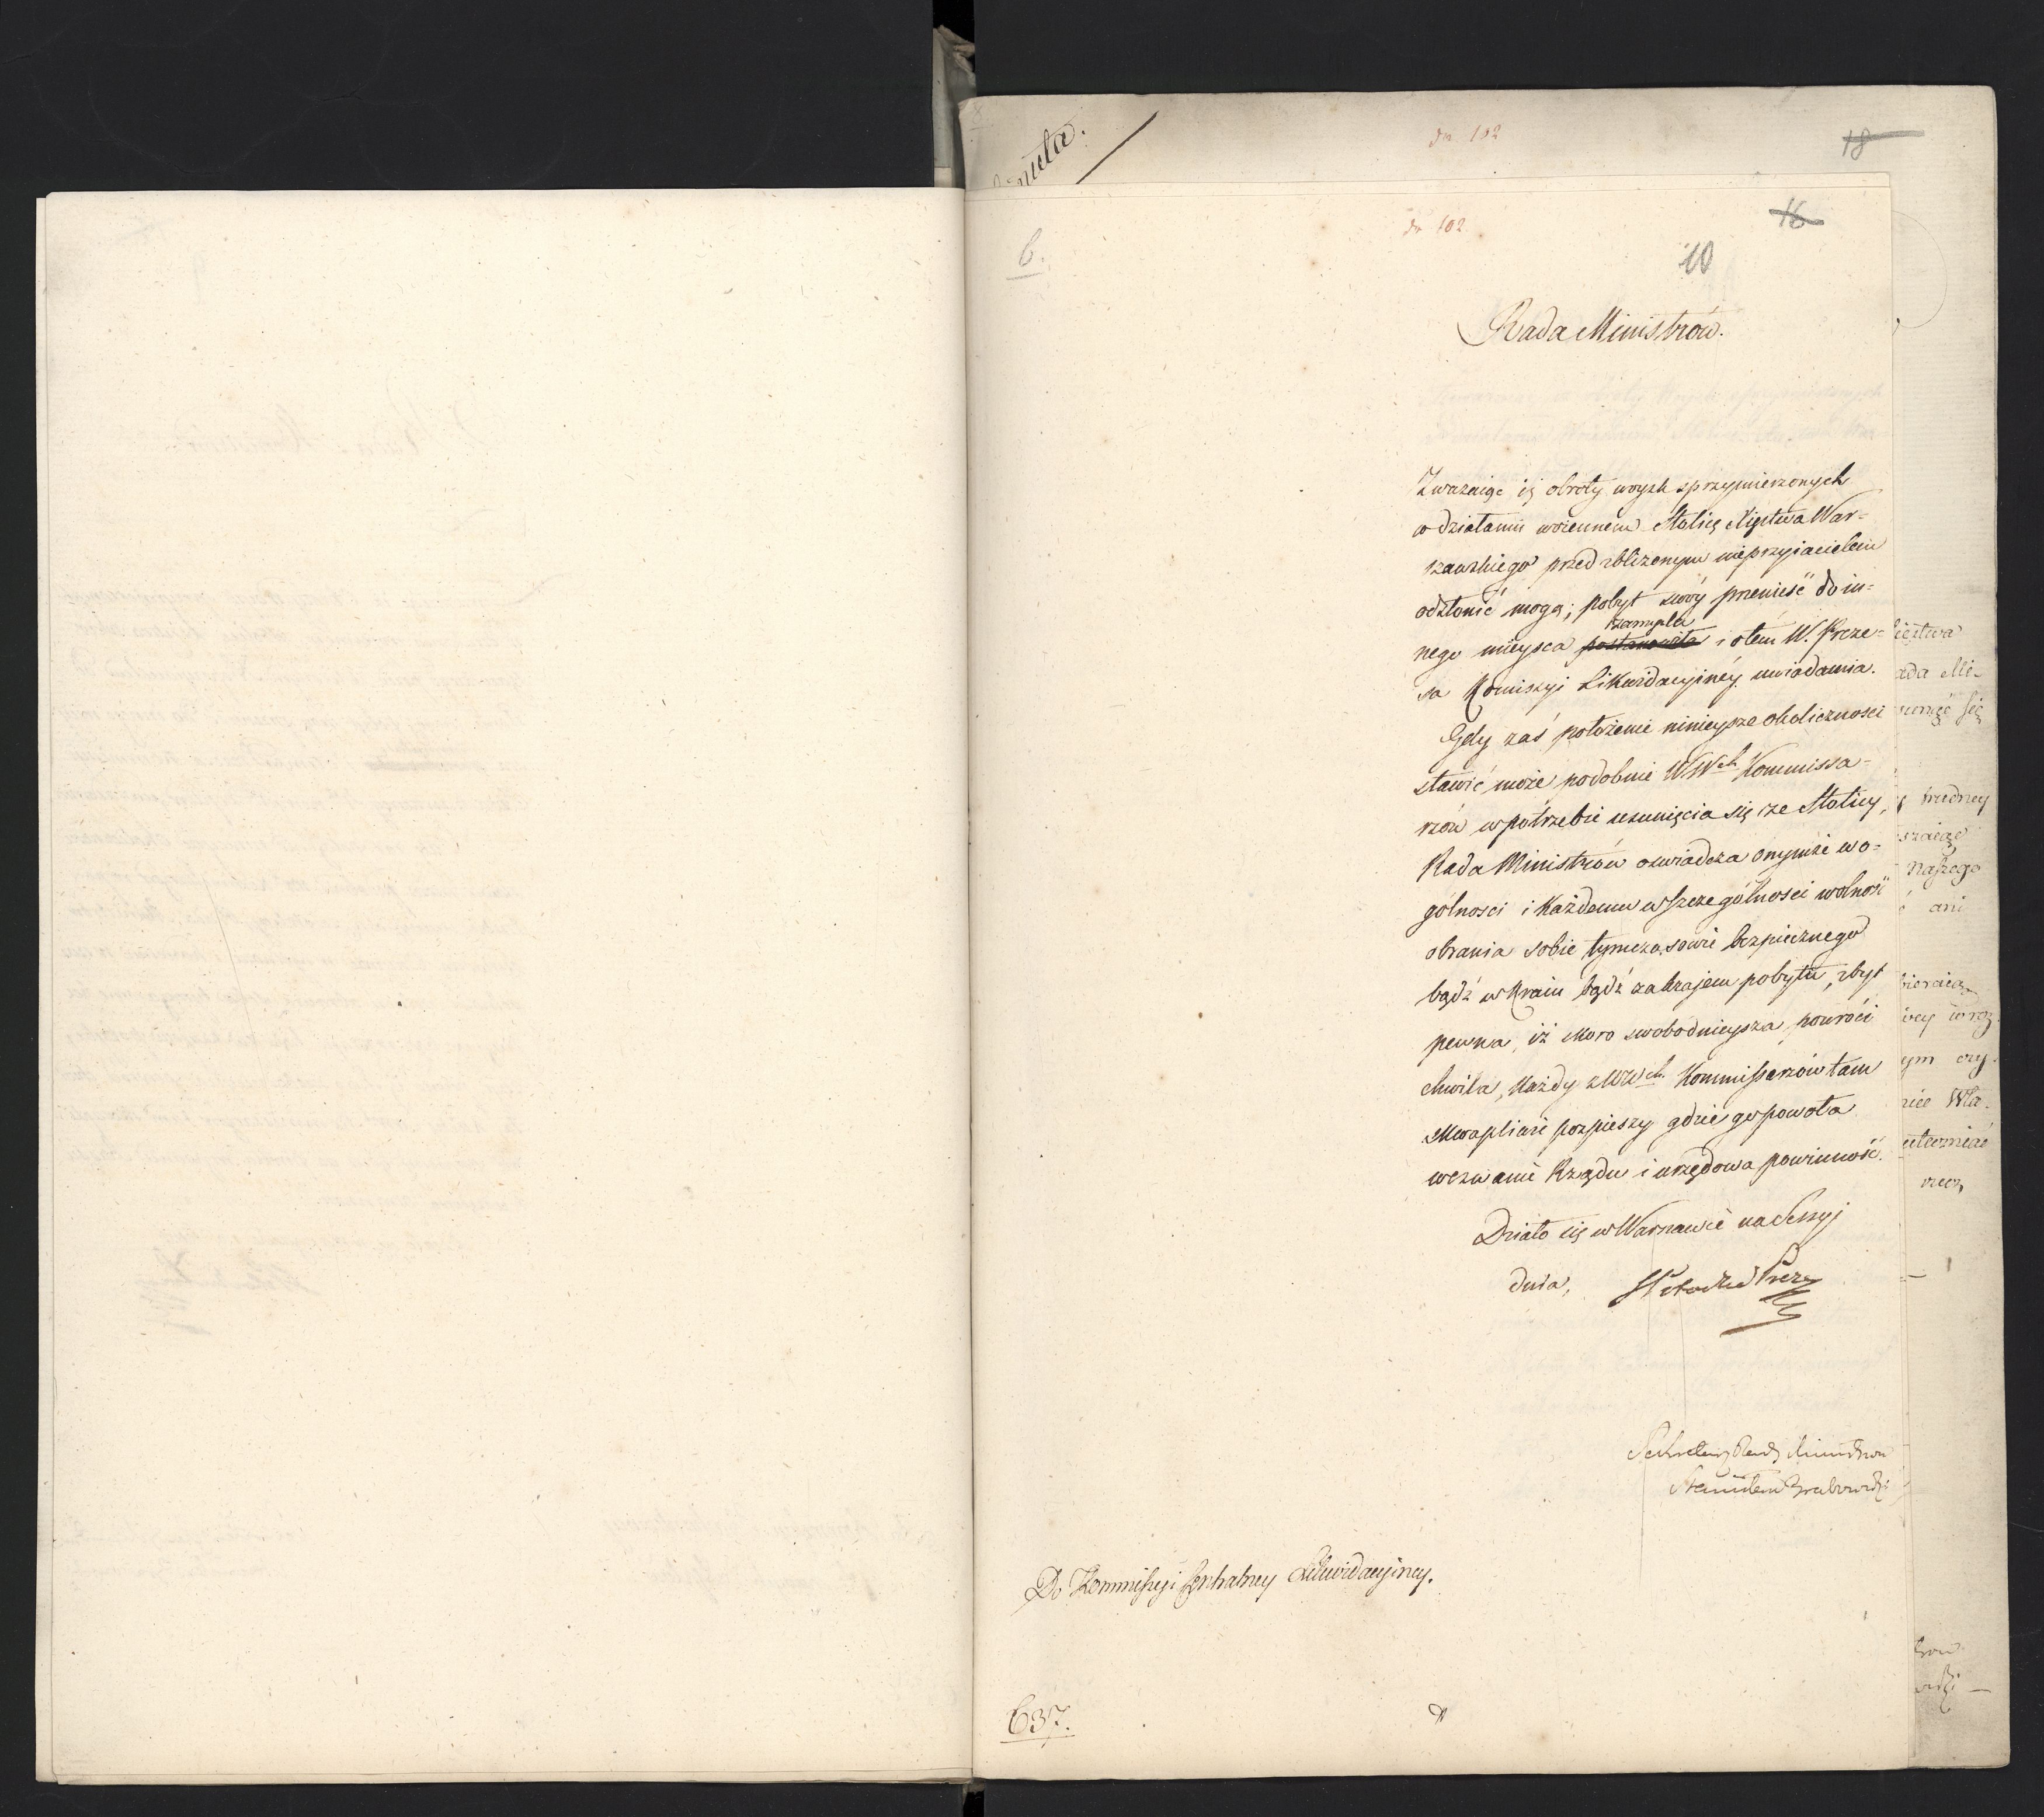 nuta.
do 102
18
do 102
16
10
6.
Rada Ministrów.
Zwazaiąc iż obroty woysk sprzymierzonych
w działaniu woiennem Stolicę Xięstwa War=
szawskiego przed zbliżonym nieprzyiacielem
odsłonić mogą; pobyt swóy przenieść do in=
nego mieysca postanowiła zamyśla i o tem W. Preze=
sa Kommiszyi Likwidacyinéy uwiadamia.
Gdy zaś położenie ninieysze okoliczności
stawić może podobnie WWch Kommissa=
rzów w potrzebie usunięcia się ze Stolicy,
Rada Ministrów oswiadcza onymże w o=
gólnosci i każdemu w szczególnosci wolność
obrania sobie tymczasowie bezpiecznego
bądź w Kraiu bądź za krajem pobytu, zbyt
pewna, iż skoro swobodnieysza powróci
chwila, każdy z WWch Kommissarzów tam
skwapliwie pospieszy gdzie go powoła
wezwanie Rządu i urzędowa powinność.
Działo się w Warszawie na Sessyj
dnia, St Potocki Prez
Sekretarz Rady Ministrow
Stanisław Grabowski
Do Kommissyi Centralney Likwidacyiney.
637.
ięstwa
ada Mi-
trudney
szaiąc
Naszego
ani
ym